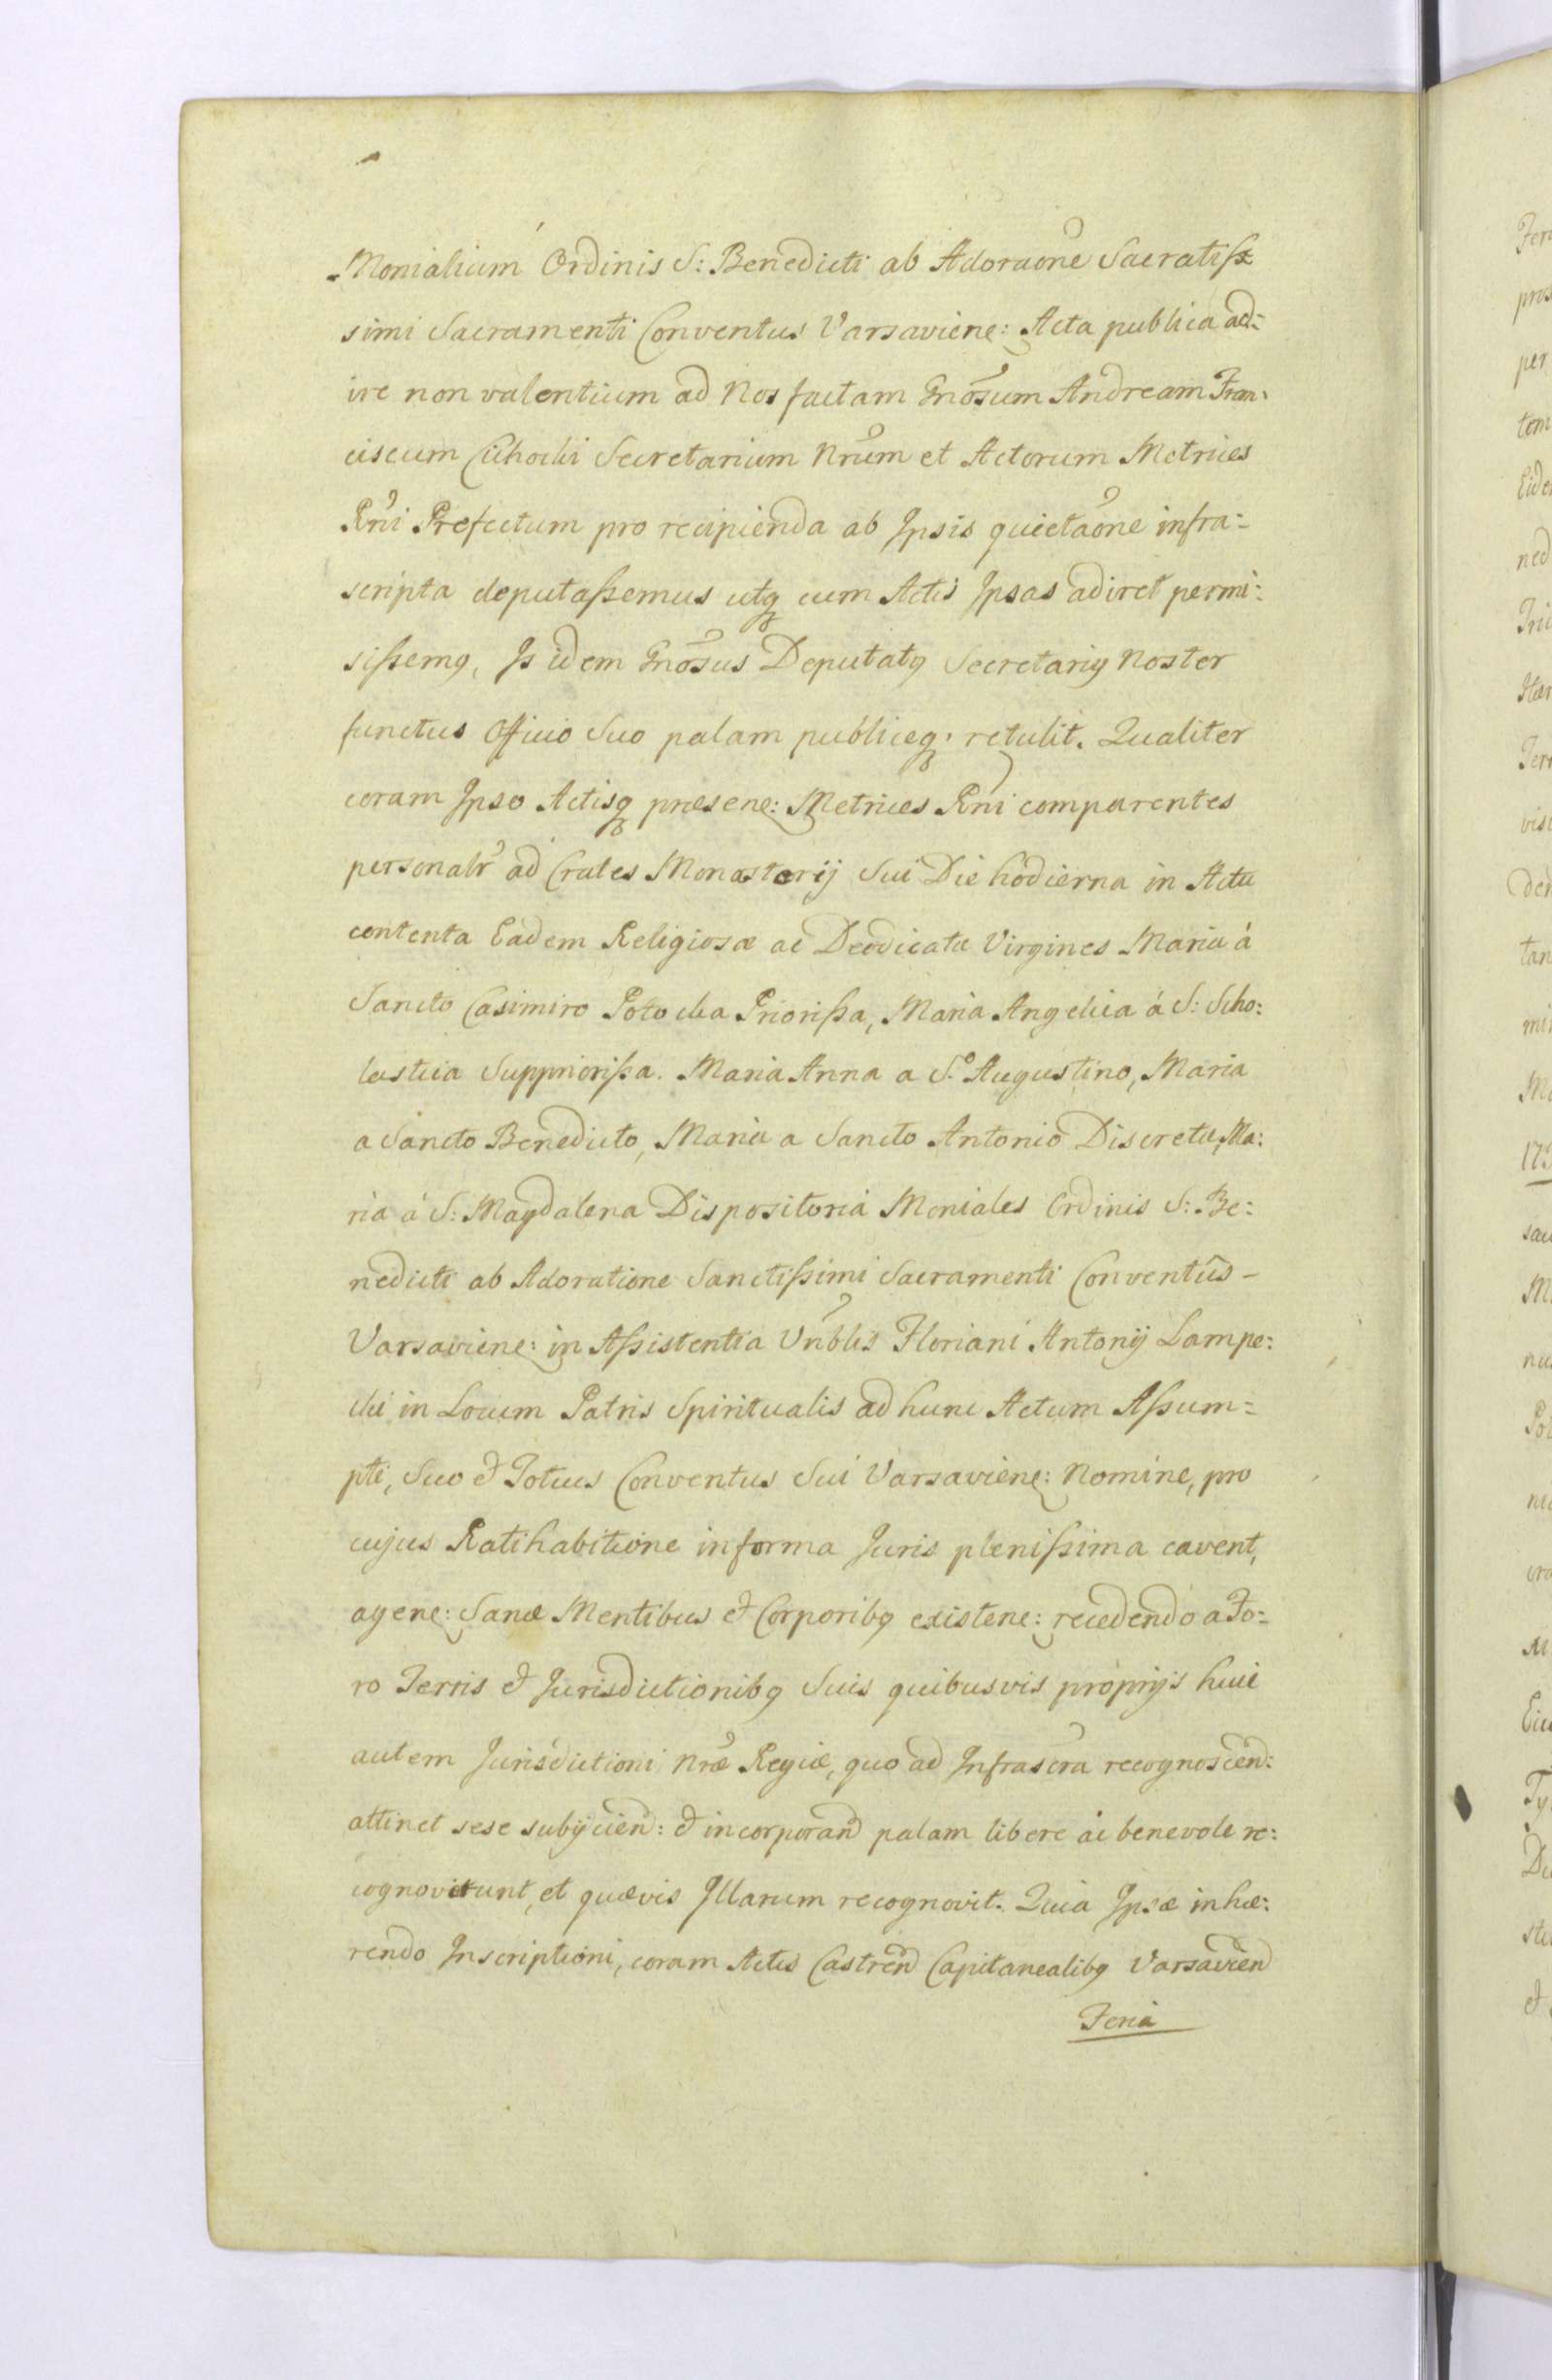 Monialium Ordinis S: Benedicti ab Adoraone Sacratiss
simi Sacramenti Conventus Varsaviene: Acta publica ad=
ire non valentium ad Nos factam Gnosum Andream Fran-
ciscum Cichocki Secretarium Nrum et Actorum Metrices
Rni Prefectum pro recipienda ab Ipsis quietaone infra=
scripta deputassemus utq cum Actis Ipsas adiret permi:
sissemq, Is idem Gnosus Deputatq Secretariq Noster
functus Officio Suo palam publiceq, retulit. Qualiter
coram Ipso Actisq præsene: Metrices Rni comparentes
personalr ad Crates Monasterij Sui Die hodierna in Actu
contenta Eadem Religiosæ ac Deodicatæ Virgines Maria á
Sancto Casimiro Potocka Priorissa, Maria Angelica á S: Scho:
lastica Suppriorissa. Maria Anna a S.o Augustino, Maria
a Sancto Benedicto, Maria a Sancto Antonio Discretæ, Ma:
ria á S: Magdalena Dispositoria Moniales Ordinis S: Be:
nedicti ab Adoratione Sanctissimi Sacramenti Conventûs -
Varsaviene: in Assistentia Vnblis Floriani Antonij Lampe:
cki in Locum Patris Spiritualis ad hunc Actum Assum=
pti, Suo et Totius Conventus Sui Varsaviene: Nomine, pro
cujus Ratihabitione in forma Juris plenissima cavent,
agene: Sanæ Mentibus et Corporibq existene: recedendo a Fo:
ro Terris et Jurisdictionibq Suis quibusvis proprijs huic
autem Jurisdictioni Nræ Regiæ, quo ad Infrascra recognoscend:
attinet sese subijciend: et incorporand palam libere ac benevole re:
cognoverunt, et quævis Illarum recognovit. Quia Ipsæ inhæ:
rendo Inscriptioni, coram Actis Castren Capitanealibq Varsavien
Feria